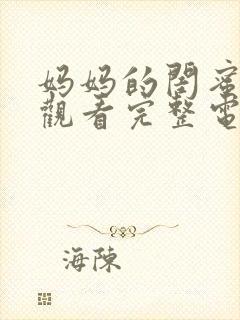 妈妈的閤蜜
觀看完整電
海陳